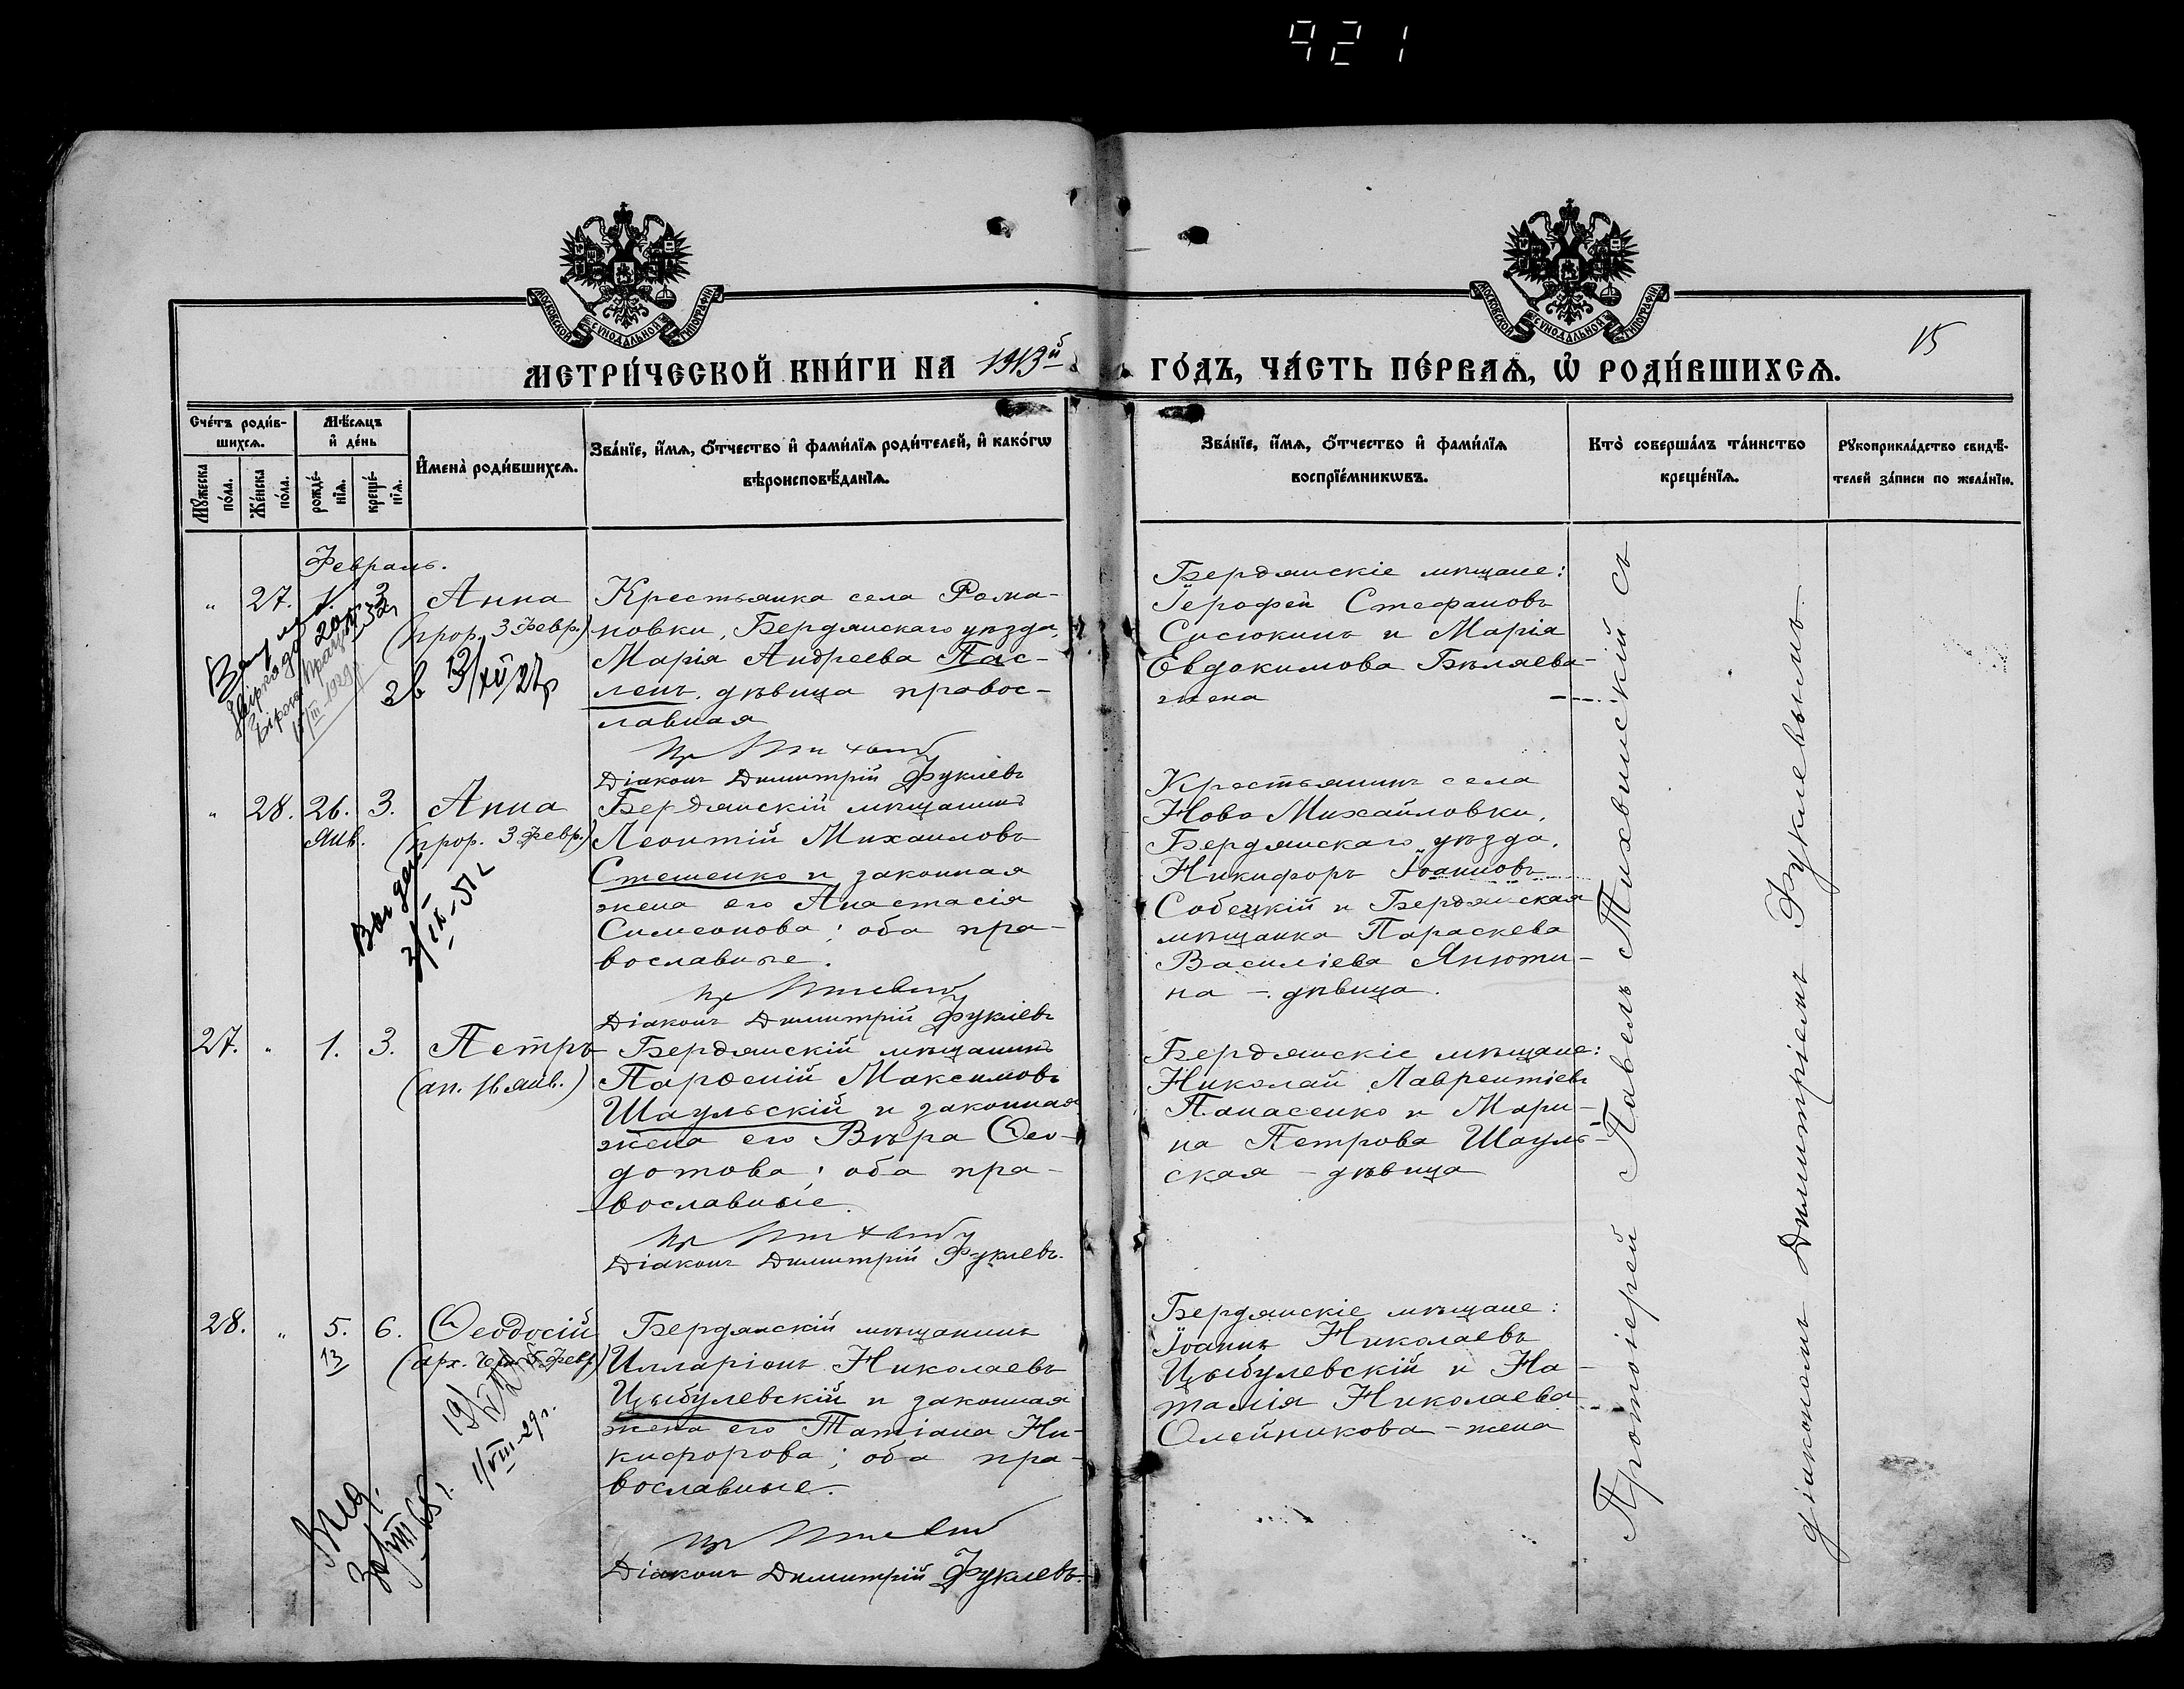 921
МОСКОВСКОЙ СѴНОДАЛЬНОЙ ТИПОГРАФІИ
МОСКОВСКОЙ СѴНОДАЛЬНОЙ ТИПОГРАФІИ
15
МЕТРИ́ЧЕСКОЙ КНИ́ГИ НА 1913й ГО́ДЪ, ЧА́СТЬ ПЕ́РВАѦ, Ѽ РОДИ́ВШИХСѦ.
Сче́тъ роди́в-
шихсѧ.
Мꙋ́жеска
по́ла.
Же́нска
по́ла.
Мѣ́сѧцъ
и҆ де́нь
рожде́-
нїѧ.
креще́-
нїѧ.
И҆мена̀ роди́вшихсѧ.
Зва́нїе, и҆́мѧ, ѻ҆́тчество и҆ фами́лїѧ роди́телей, и҆ како́гѡ
вѣроисповѣ́данїѧ.
Зва́нїе, и҆́мѧ, ѻ҆́тчество и҆ фами́лїѧ
воспрїе́мникѡвъ.
Кто̀ соверша́лъ та́инство
креще́нїѧ.
Рꙋкоприкла́дство свидѣ́-
телей за́писи по жела́нїю.
Февраль.
" 27. 1. 3. Анна
(прор. 3 Февр.)
Крестьянка села Рома-
новки, Бердянскаго уѣзда,
Марія Андреева Пас-
лень, дѣвица правос-
лавная
Діаконъ Димитрій Фуклевъ
Бердянскіе мѣщане:
Іерофей Стефановъ
Сисюкинъ и Марія
Евдокимова Бѣляева-
жена
" 28. 26. 3. Анна
Янв. (прор. 3 Февр.)
Бердянскій мѣщанинъ
Леонтій Михаиловъ
Стешенко и законная
жена его Анастасія
Симеонова; оба пра-
вославные.
Діаконъ Димитрій Фуклевъ
Крестьянинъ села
Ново Михайловки,
Бердянскаго уѣзда,
Никифоръ Іоанновъ
Собецкій и Бердянская
мѣщанка Параскева
Василіева Янюти-
на - дѣвица.
27. " 1. 3. Петръ
(ап. 16 янв.)
Бердянскій мѣщанинъ
Парѳеній Максимовъ
Шаульскій и законная
жена его Вѣра Ѳео-
дотова; оба пра-
вославные.
Діаконъ Димитрій Фуклевъ.
Бердянскіе мѣщане:
Николай Лаврентіевъ
Панасенко и Мари-
на Петрова Шауль-
ская - дѣвица
28. " 5. 6. Ѳеодосій
13 (арх. Черн. 5 Февр.)
Бердянскій мѣщанинъ
Илларіонъ Николаевъ
Цыбулевскій и законная
жена его Татіана Ни-
кифорова; оба пра-
вославные.
Діаконъ Димитрій Фуклевъ.
1/VIII-29г.
Бердянскіе мѣщане:
Іоаннъ Николаевъ
Цыбулевскій и На-
талія Николаева
Олейникова - жена
Протоіерей Павелъ Тихвинскій съ
діакономъ Димитріемъ Фуклевымъ